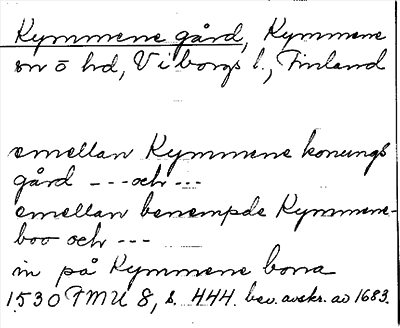 Kymmene gård, Kymmene
sn ö hd, Viborgs l., Finland
emellan Kymmene konungs
gård --- och ---
emellan benempde Kymmene-
boo och ---
in på Kymmene bona
1530 FMU 8, s. 444. bev. avskr. av 1683.